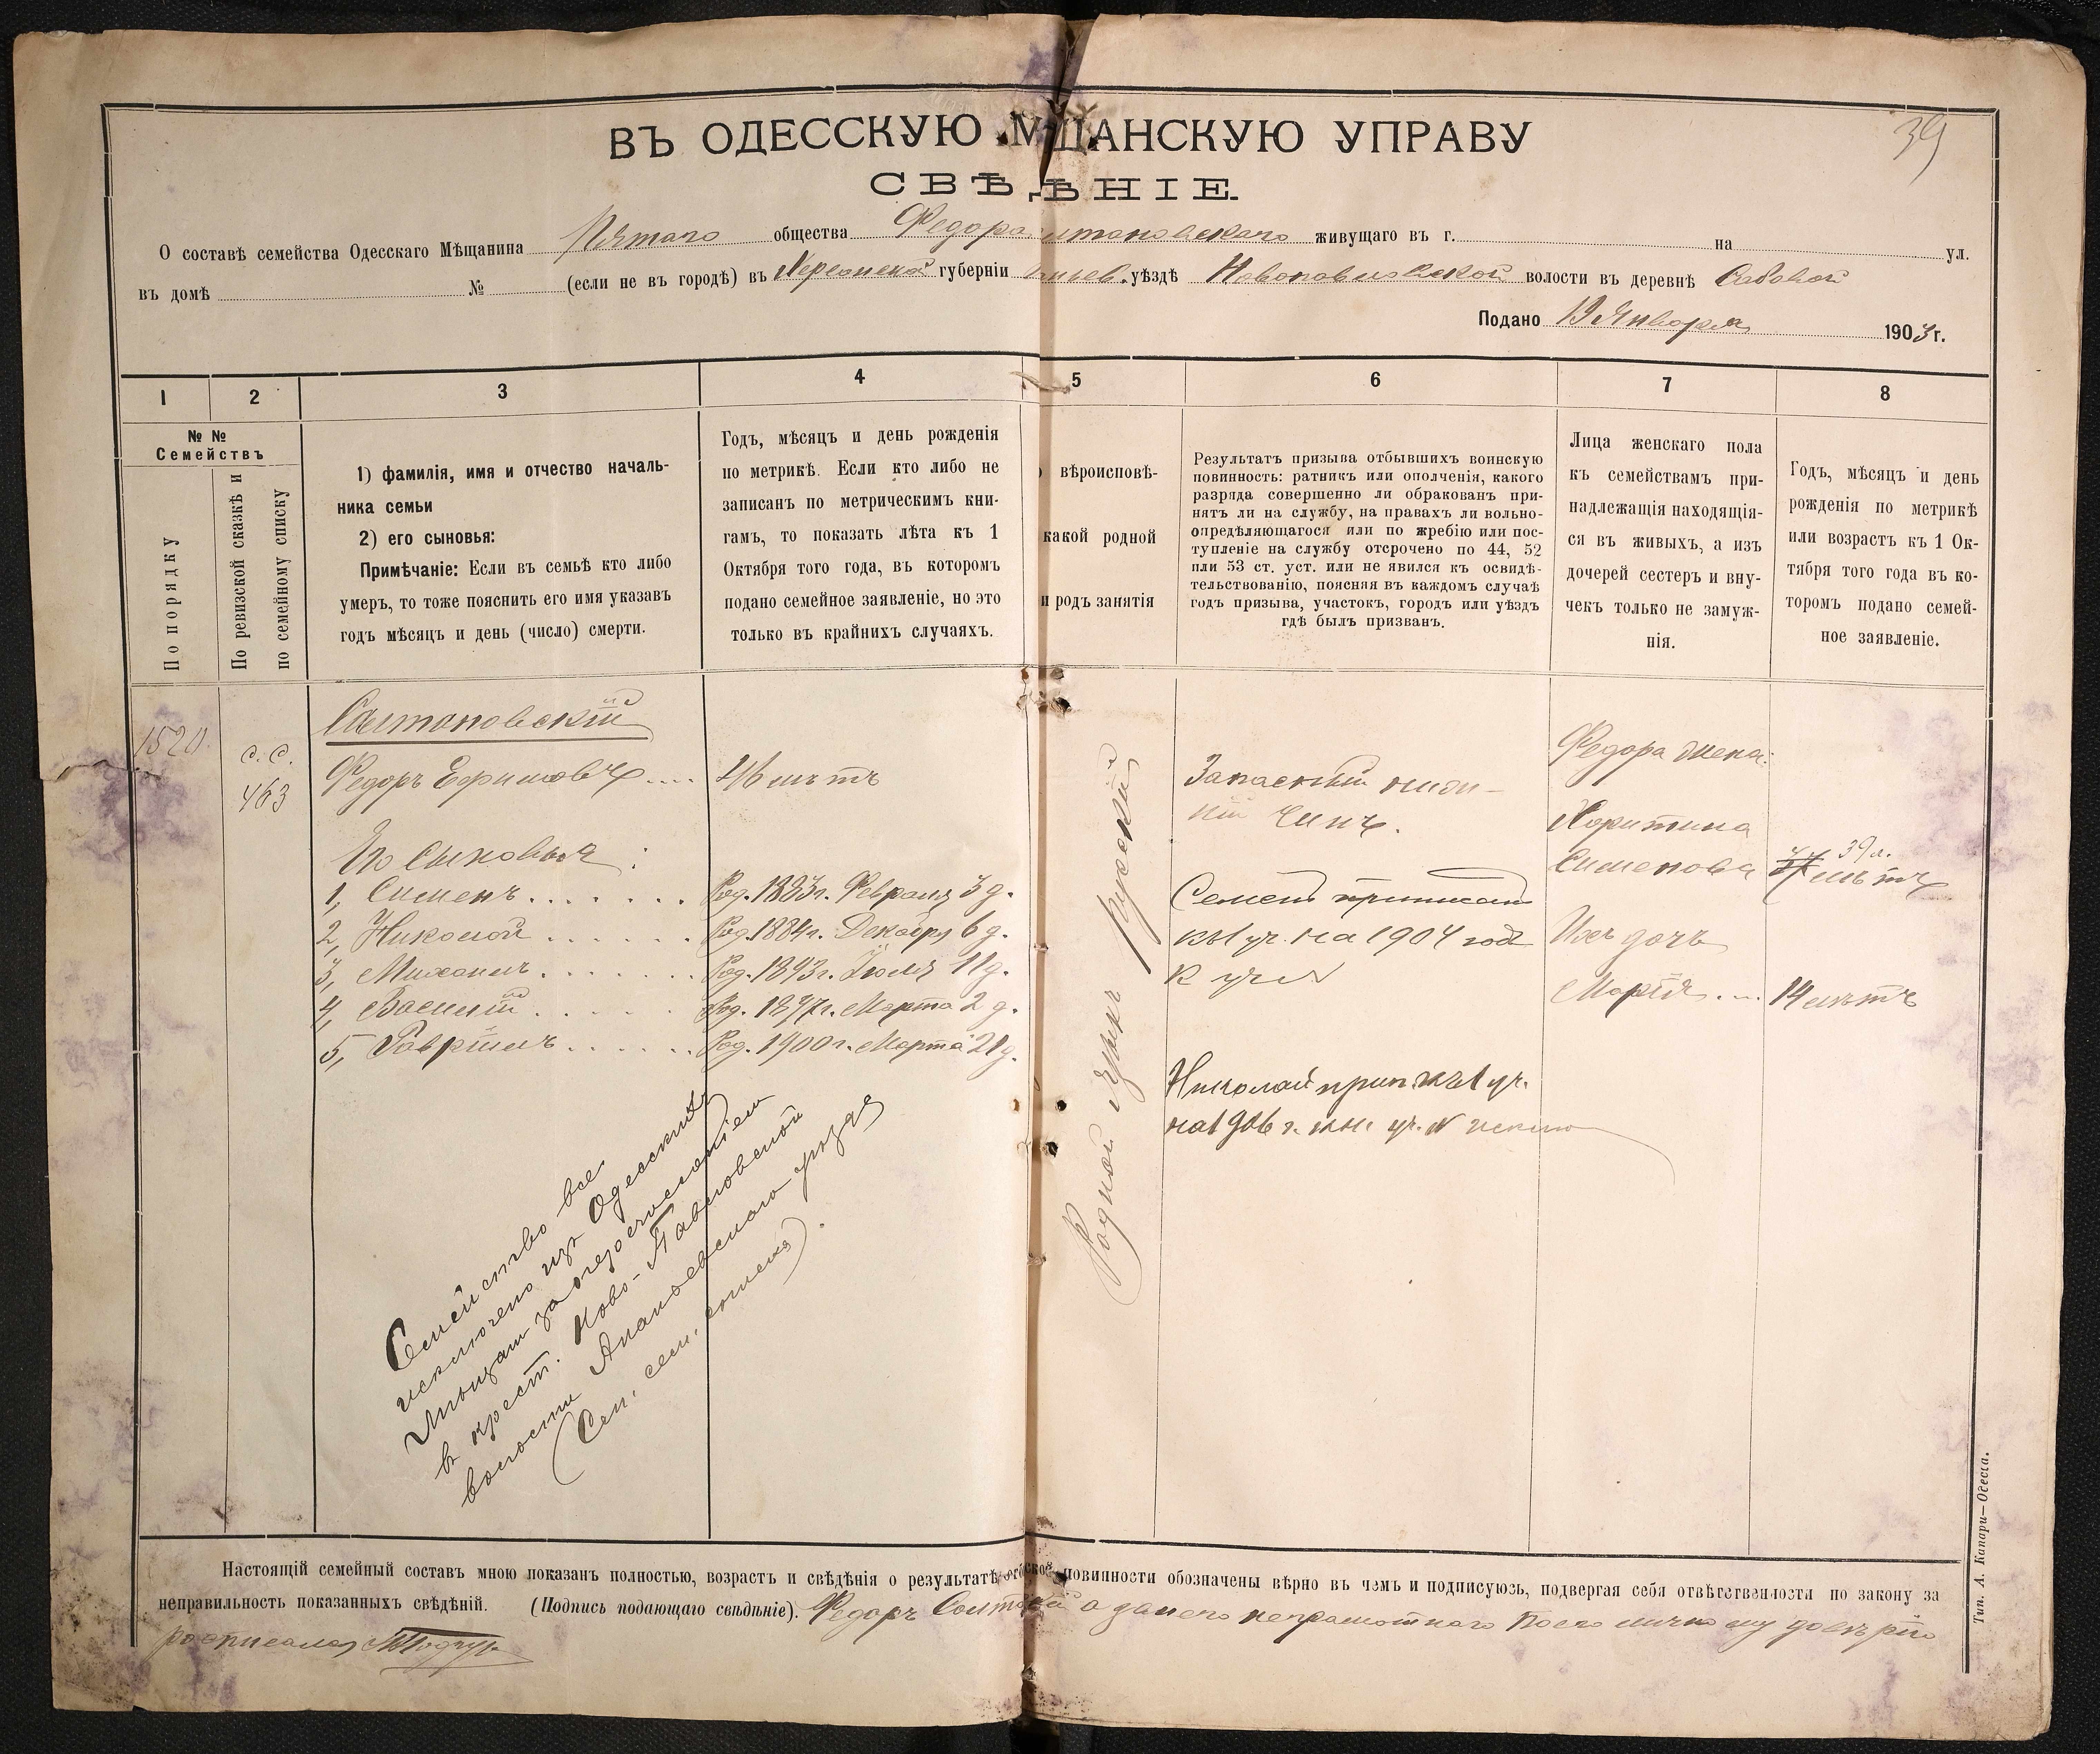 39
ВЪ ОДЕССКУЮ МЩАНСКУЮ УПРАВУ
СВѢДѢНІЕ
О составѣ семейства Одесскаго Мѣщанина Пятаго общества Федора живущаго въ г. на ул.
въ домѣ № (если не въ городѣ) въ Херсонской губерніи уѣздѣ Новопавловской волости въ деревнѣ
Подано 19 Января 1903 г.
1
2
3
4
5
6
7
8
№ №
Семействъ
По порядку
По ревизской сказкѣ и
по семейному списку
1) фамилія, имя и отчество началь-
ника семьи
2) его сыновья:
Примѣчаніе: Если въ семьѣ кто либо
умеръ, то тоже пояснить его имя указавъ
годъ мѣсяцъ и день (число) смерти.
Годъ, мѣсяцъ и день рожденія
по метрикѣ. Если кто либо не
записанъ по метрическимъ кни-
гамъ, то показать лѣта къ 1
Октября того года, въ которомъ
подано семейное заявленіе, но это
только въ крайнихъ случаяхъ.
вѣроисповѣ-
какой родной
и родъ занятія
Результатъ призыва отбывшихъ воинскую
повинность: ратникъ или ополченія, какого
разряда совершенно ли обракованъ при-
нятъ ли на службу, на правахъ ли вольно-
опредѣляющагося или по жребію или пос-
тупленіе на службу отсрочено по 44, 52
или 53 ст. уст. или не явился къ освидѣ-
тельствованію, поясняя въ каждомъ случаѣ
годъ призыва, участокъ, городъ или уѣздъ
гдѣ былъ призванъ.
Лица женскаго пола
къ семействамъ при-
надлежащія находящія-
ся въ живыхъ, а изъ
дочерей сестеръ и вну-
чекъ только не замуж-
нія.
Годъ, мѣсяцъ и день
рожденія по метрикѣ
или возрастъ къ 1 Ок-
тября того года въ ко-
торомъ подано семей-
ное заявленіе.
1520
с. с.
463
Салтановскій
Федоръ Ефимовъ .... 46 лѣтъ
Его Сыновья:
1, Сименъ ....... Род. 1883г. Февраля 3 д.
2, Николай ...... Род. 1884г. Декабря 6 д.
3, Михаилъ ....... Род. 1893г. Іюля 11 д.
4, Василій ...... Род. 1897г. Марта 2 д.
5, Гавріилъ ...... Род. 1900г. Марта 21 д.
Семейство все
исключено изъ Одесскихъ
мѣщан за перечисленіем
в крест. Ново-Павловской
волости Ананьевскаго уѣзда
(Сем. списка).
Родной языкъ Русский
Запасный ниж-
ній Чинъ.
Семенъ приписан
къ 1 уч. на 1904 годъ
Николай прип. къ 1 уч.
на 1906 г.
Федора жена:
Харитина
Сименова
39 л.
лѣтъ
Ихъ дочь
Марія ... 14 лѣтъ
Настоящій семейный составъ мною показанъ полностью, возрастъ и свѣдѣнія о результатѣ повинности обозначены вѣрно въ чемъ и подписуюсь, подвергая себя отвѣтственности по закону за
неправильность показанныхъ свѣдѣній. (Подпись подающаго свѣдѣніе). Федоръ а за него неграмотнаго по его личному довѣрію
росписался
Тип. А. Капари—Одесса.